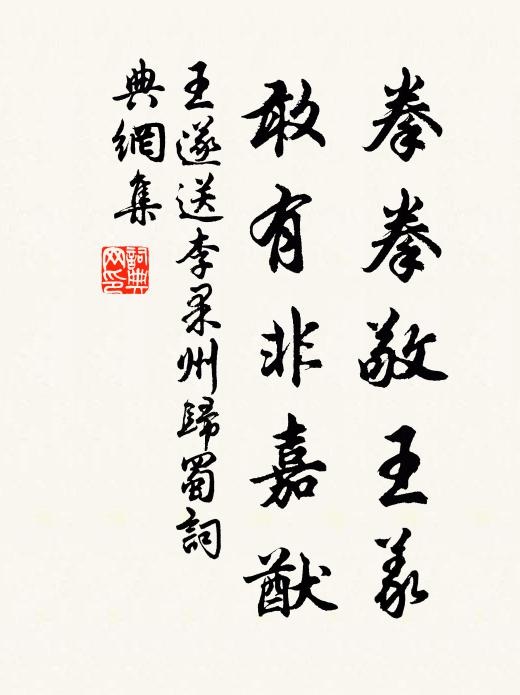 拳拳敬王義
敢有非嘉猷
王遂送李果州歸蜀詞
典網集
詞典
网印